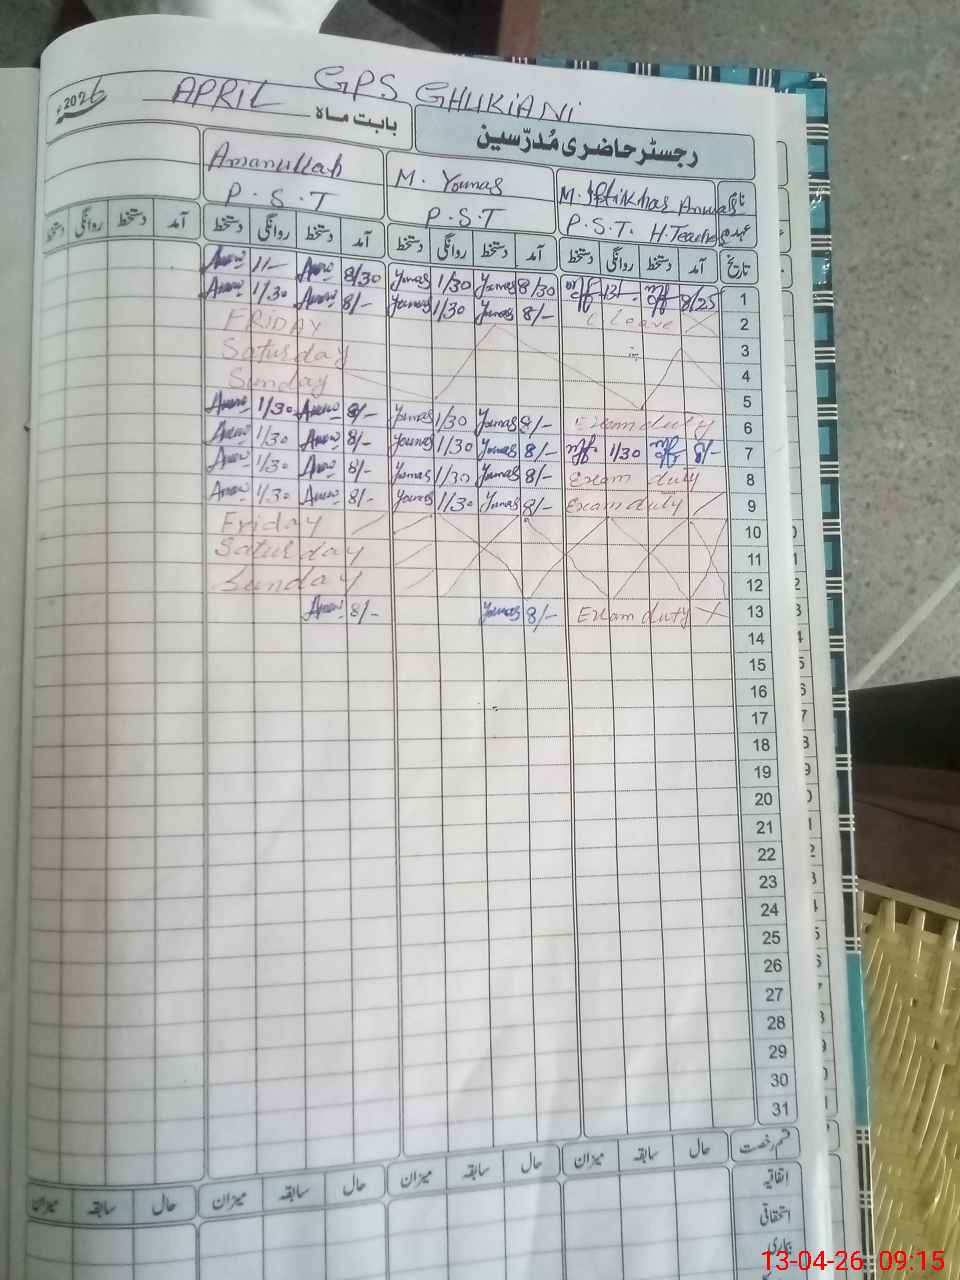 GPS GHUKIANI
رجسٹر حاضری مُدرّسین
بابت ماہ APRIL 2026ء
نام M. Iftikhar Anwar M. Younas Amanullah
عہدہ P.S.T. H.Teacher P.S.T P.S.T
تاریخ آمد دستخط روانگی دستخط آمد دستخط روانگی دستخط آمد دستخط روانگی دستخط آمد دستخط روانگی دستخط
1 8/25 8/30 Younas 1/30 Younas 8/30 11/-
2 Leave 8/- Younas 1/30 Younas 8/- 1/30
3 FRIDAY
4 Saturday
5 Sunday
6 Exam duty 8/- Younas 1/30 Younas 8/- 1/30
7 8/- 1/30 8/- Younas 1/30 Younas 8/- 1/30
8 Exam duty 8/- Younas 1/30 Younas 8/- 1/30
9 Exam duty 8/- Younas 1/30 Younas 8/- 1/30
10 Friday
11 Saturday
12 Sunday
13 Exam duty 8/- Younas 8/-
14
15
16
17
18
19
20
21
22
23
24
25
26
27
28
29
30
31
قسم رخصت حال سابقہ میزان حال سابقہ میزان حال سابقہ میزان حال سابقہ میزان
اتفاقیہ
استحقاقی
بیماری
13-04-26 09:15